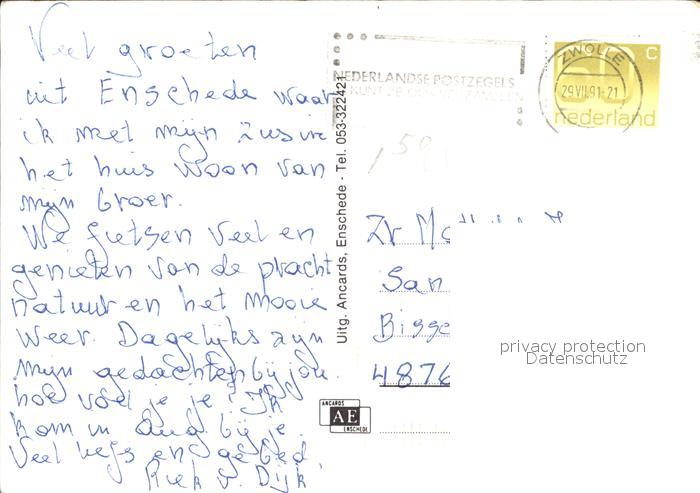 Veel groeten
uit Enschede waar
ik met mijn zus in
het huis woon van
mijn broer.
We fietsen veel en
genieten van de pracht
natuur en het mooie
weer. Dagelijks zijn
mijn gedachten bij jou.
hoe voel je je? Ik
kom in aug bij je.
Veel liefs en gebed
Riek v. Dijk
Uitg. Ancards, Enschede - Tel. 053-322421
NEDERLANDSE POSTZEGELS
KUNT ZE
ZWOLLE
29.VII.91-21
50 C
nederland
159
Zr
San
Bisse
4876
ANCARDS
AE
ENSCHEDE
privacy protection
Datenschutz